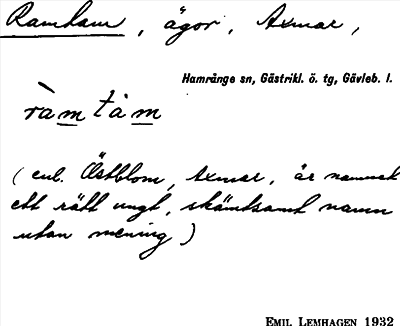 Ramtam, ägor, Axmar,
Hamrånge sn, Gästrikl. ö. tg, Gävleb. l.
ràmtàm
(enl. Östblom, Axmar, är namnet
ett rätt ungt, skämtsamt namn
utan mening)
EMIL LEMHAGEN 1932